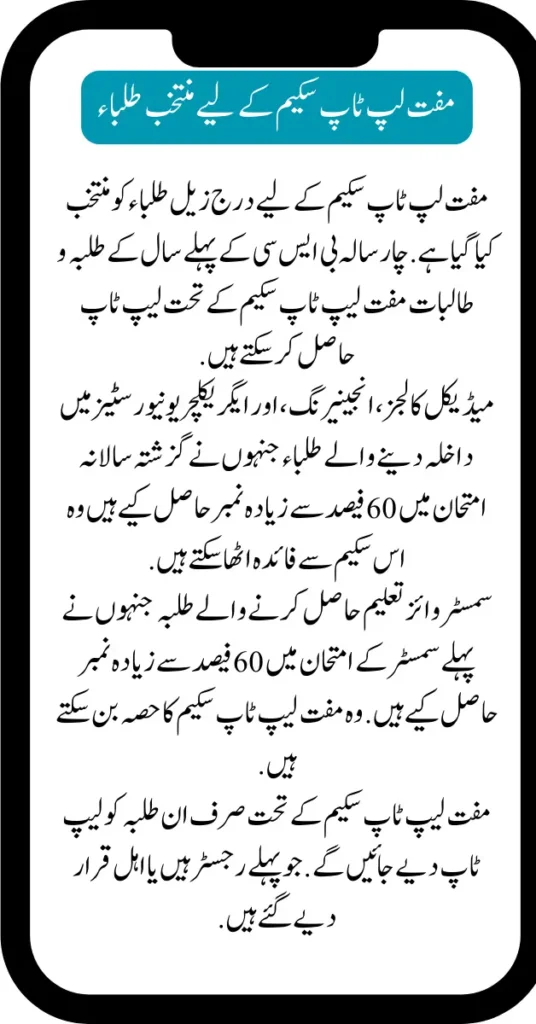 مفت لپ ٹاپ سکیم کے لیے منتخب طلباء
مفت لپ ٹاپ سکیم کے لیے درج زیل طلباء کو منتخب
کیا گیا ہے. چار سالہ بی ایس سی کے پہلے سال کے طلبہ و
طالبات مفت لیپ ٹاپ سکیم کے تحت لیپ ٹاپ
حاصل کر سکتے ہیں.
میڈیکل کالجز ،انجینیرنگ ،اور ایگریکلچر یونیورسٹیز میں
داخلہ دینے والے طلباء جنہوں نے گزشتہ سالانہ
امتحان میں 60 فیصد سے زیادہ نمبر حاصل کیے ہیں وہ
اس سکیم سے فائدہ اٹھا سکتے ہیں.
سمسٹر وائز تعلیم حاصل کرنے والے طلبہ جنہوں نے
پہلے سمسٹر کے امتحان میں 60 فیصد سے زیادہ نمبر
حاصل کیے ہیں. وہ مفت لیپ ٹاپ سکیم کا حصہ بن سکتے
ہیں.
مفت لیپ ٹاپ سکیم کے تحت صرف ان طلبہ کو لیپ
ٹاپ دیے جائیں گے. جو پہلے رجسٹر ہیں یا اہل قرار
دیے گئے ہیں.